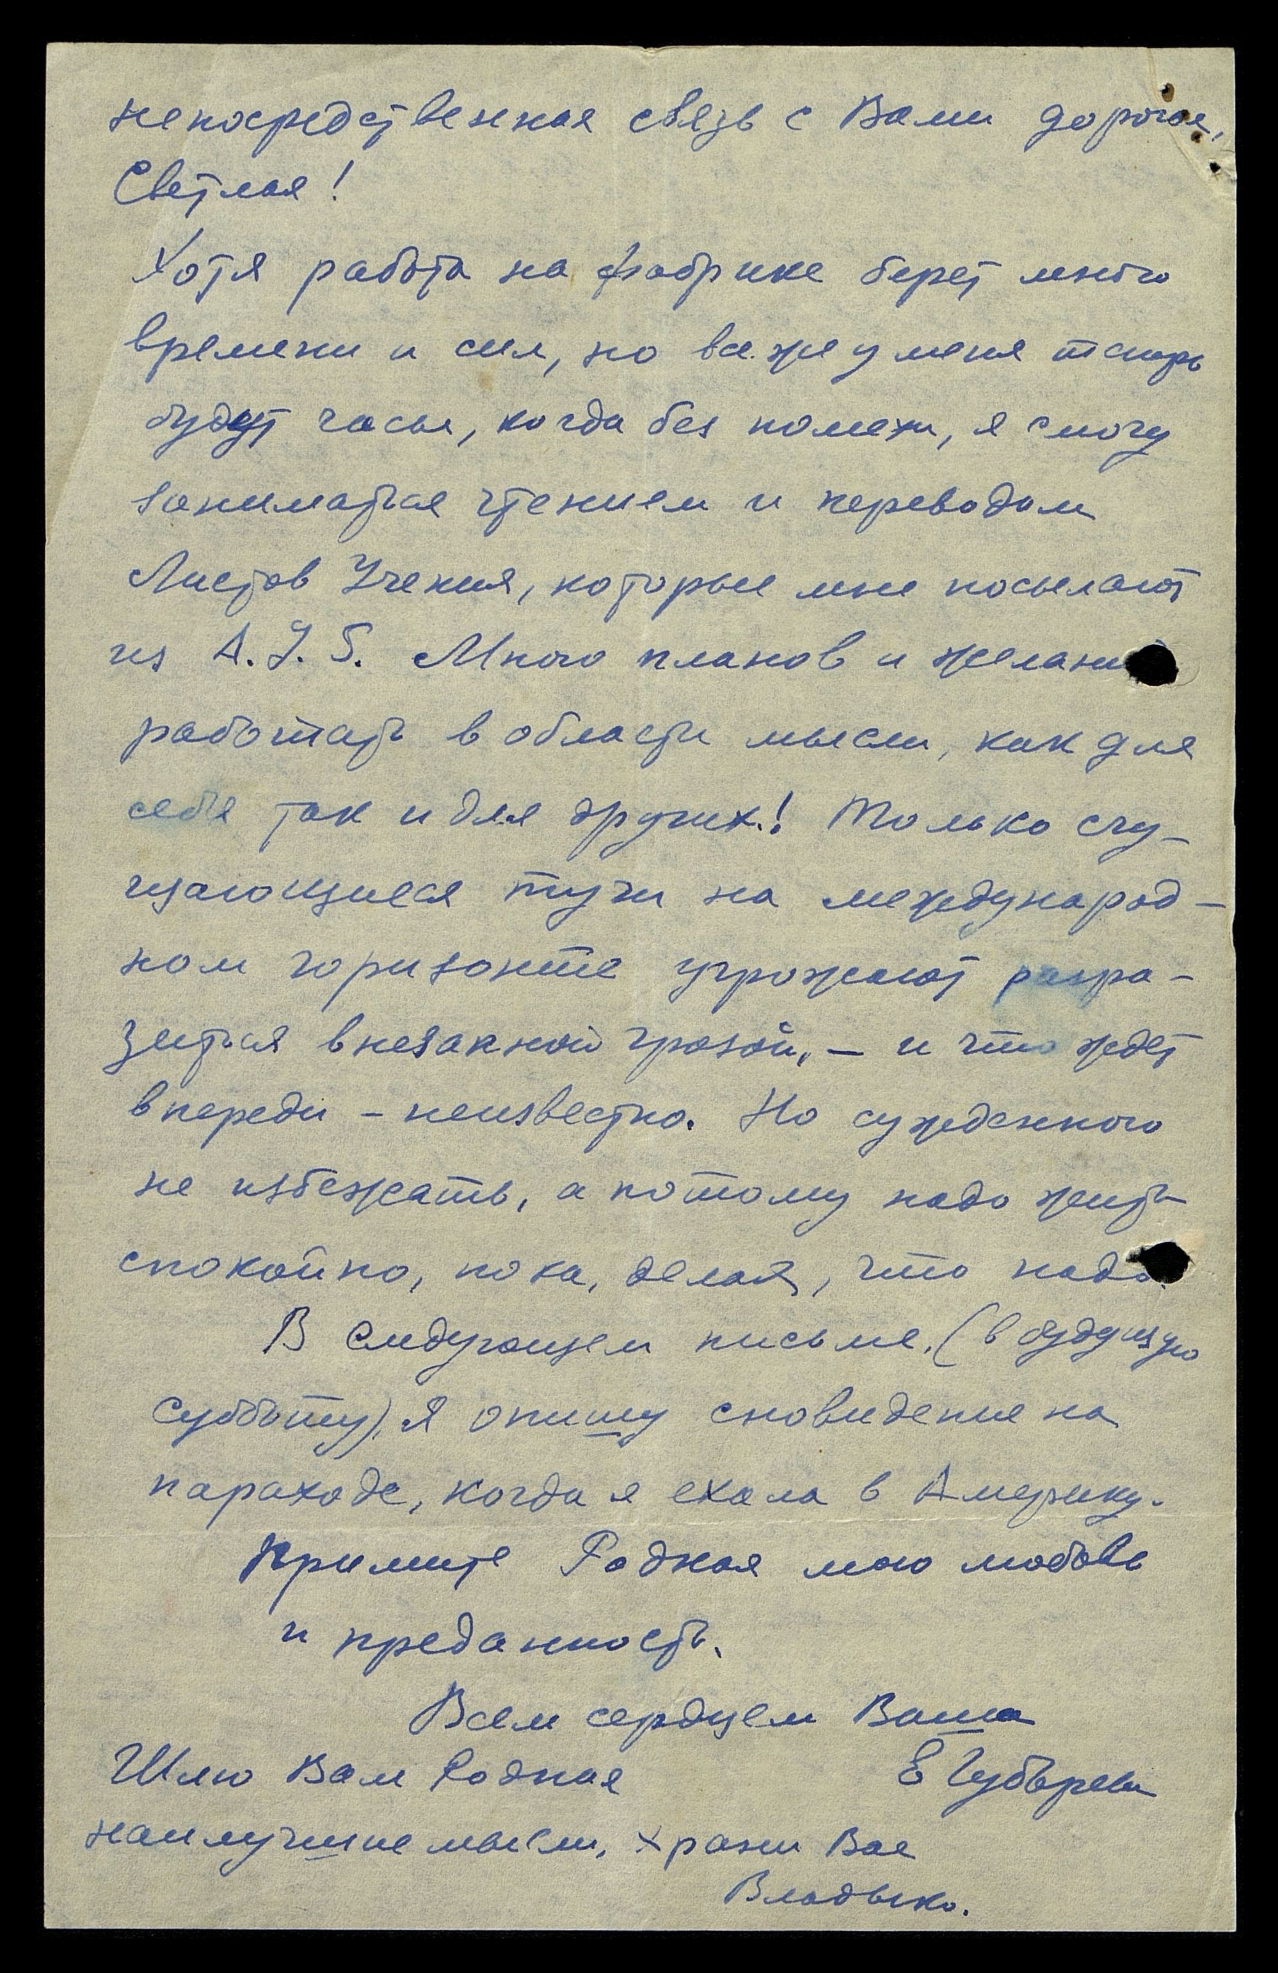 непосредственная связь с Вами дорогая,
Светлая!
Хотя работа на фабрике берет много
времени и сил, но все же у меня теперь
будут часы, когда без помехи, я смогу
заниматься чтением и переводом
Листов Учения, которые мне посылают
из A.Y.S. Много планов и желани
работать в области мысли, как для
себя так и для других! Только сгу-
щающиеся тучи на международ-
ном горизонте угрожают разра-
зиться внезапной грозой, – и что ждет
впереди – неизвестно. Но сужденного
не избежать, а потому надо жить
спокойно, пока, делая, что надо.
В следующем письме, (в будущую
субботу), я опишу сновидение на
параходе, когда я ехала в Америку.
Примите Родная мою любовь
и преданность.
Всем сердцем Ваша
Шлю Вам Родная Е Губарева
наилучшие мысли, храни Вас
Владыко.